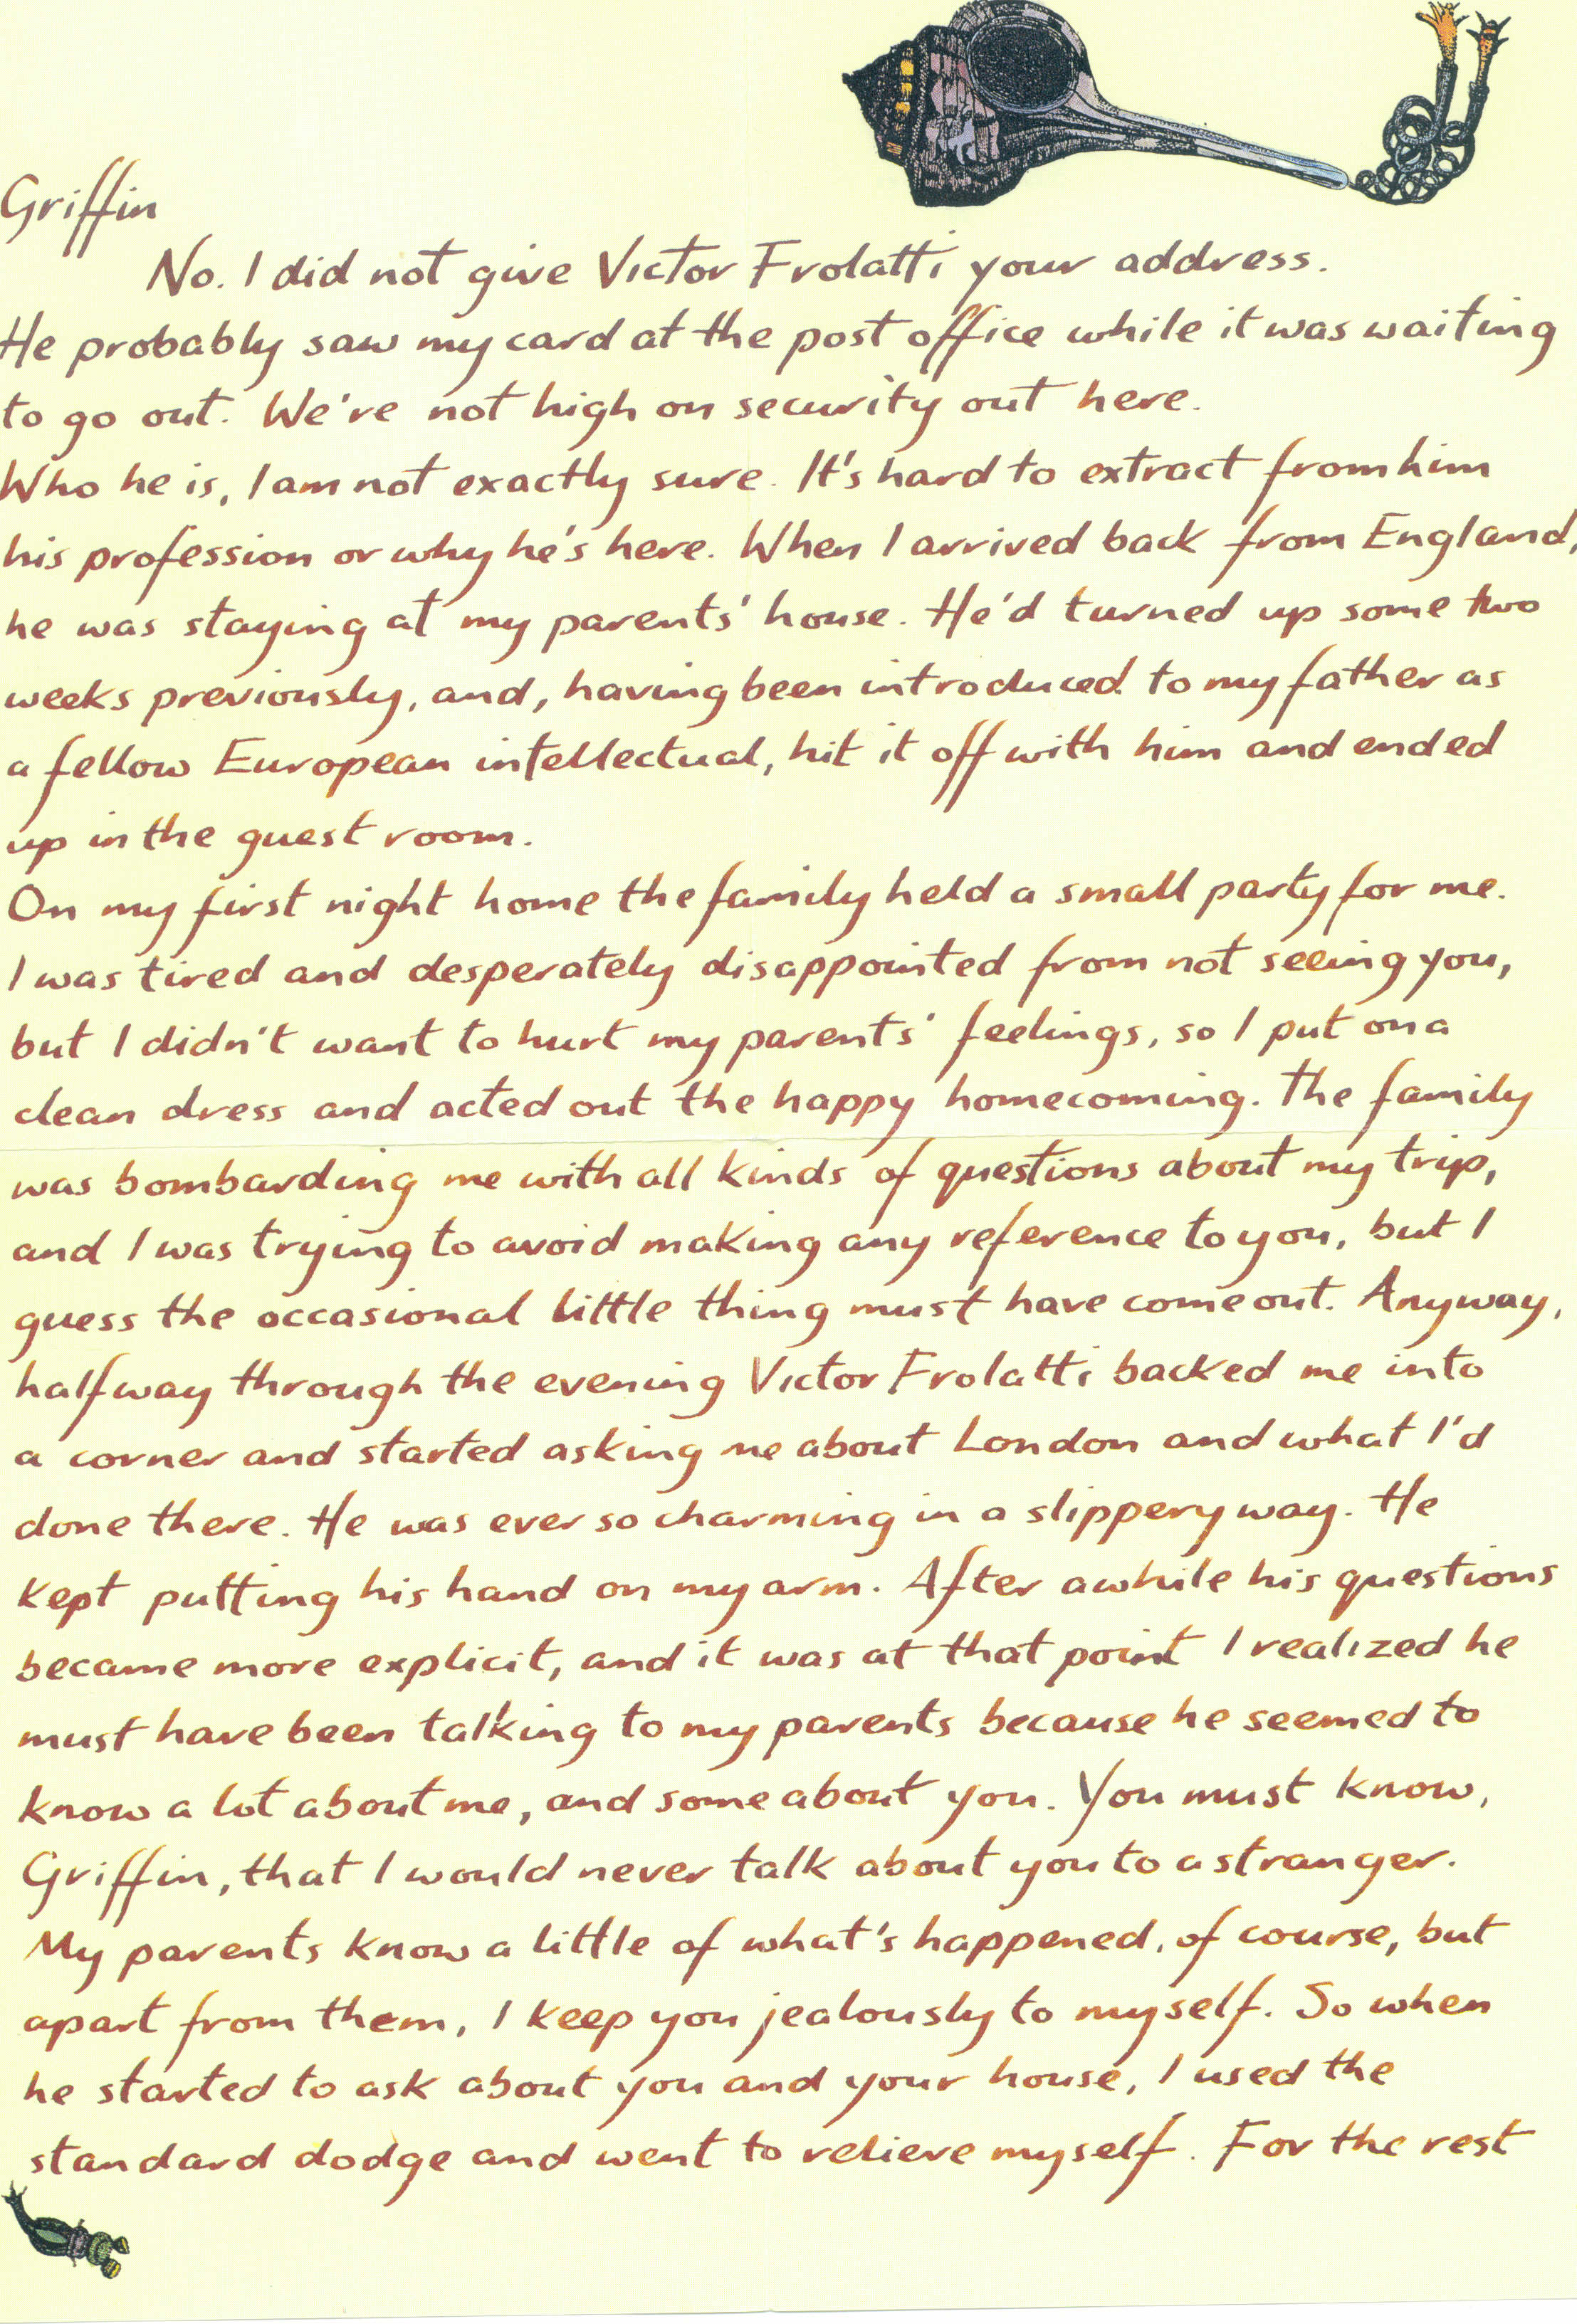 Griffin
No. I did not give Victor Frolatti your address.
He probably saw my card at the post office while it was waiting
to go out. We're not high on security out here.
Who he is, I am not exactly sure. It's hard to extract from him
his profession or why he's here. When I arrived back from England,
he was staying at my parents' house. He'd turned up some two
weeks previously, and, having been introduced to my father as
a fellow European intellectual, hit it off with him and ended
up in the guest room.
On my first night home the family held a small party for me.
I was tired and desperately disappointed from not seeing you,
but I didn't want to hurt my parents' feelings, so I put on a
clean dress and acted out the happy homecoming. The family
was bombarding me with all kinds of questions about my trip,
and I was trying to avoid making any reference to you, but I
guess the occasional little thing must have come out. Anyway,
halfway through the evening Victor Frolatti backed me into
a corner and started asking me about London and what I'd
done there. He was ever so charming in a slippery way. He
kept putting his hand on my arm. After awhile his questions
became more explicit, and it was at that point I realized he
must have been talking to my parents because he seemed to
know a lot about me, and some about you. You must know,
Griffin, that I would never talk about you to a stranger.
My parents know a little of what's happened, of course, but
apart from them, I keep you jealously to myself. So when
he started to ask about you and your house, I used the
standard dodge and went to relieve myself. For the rest